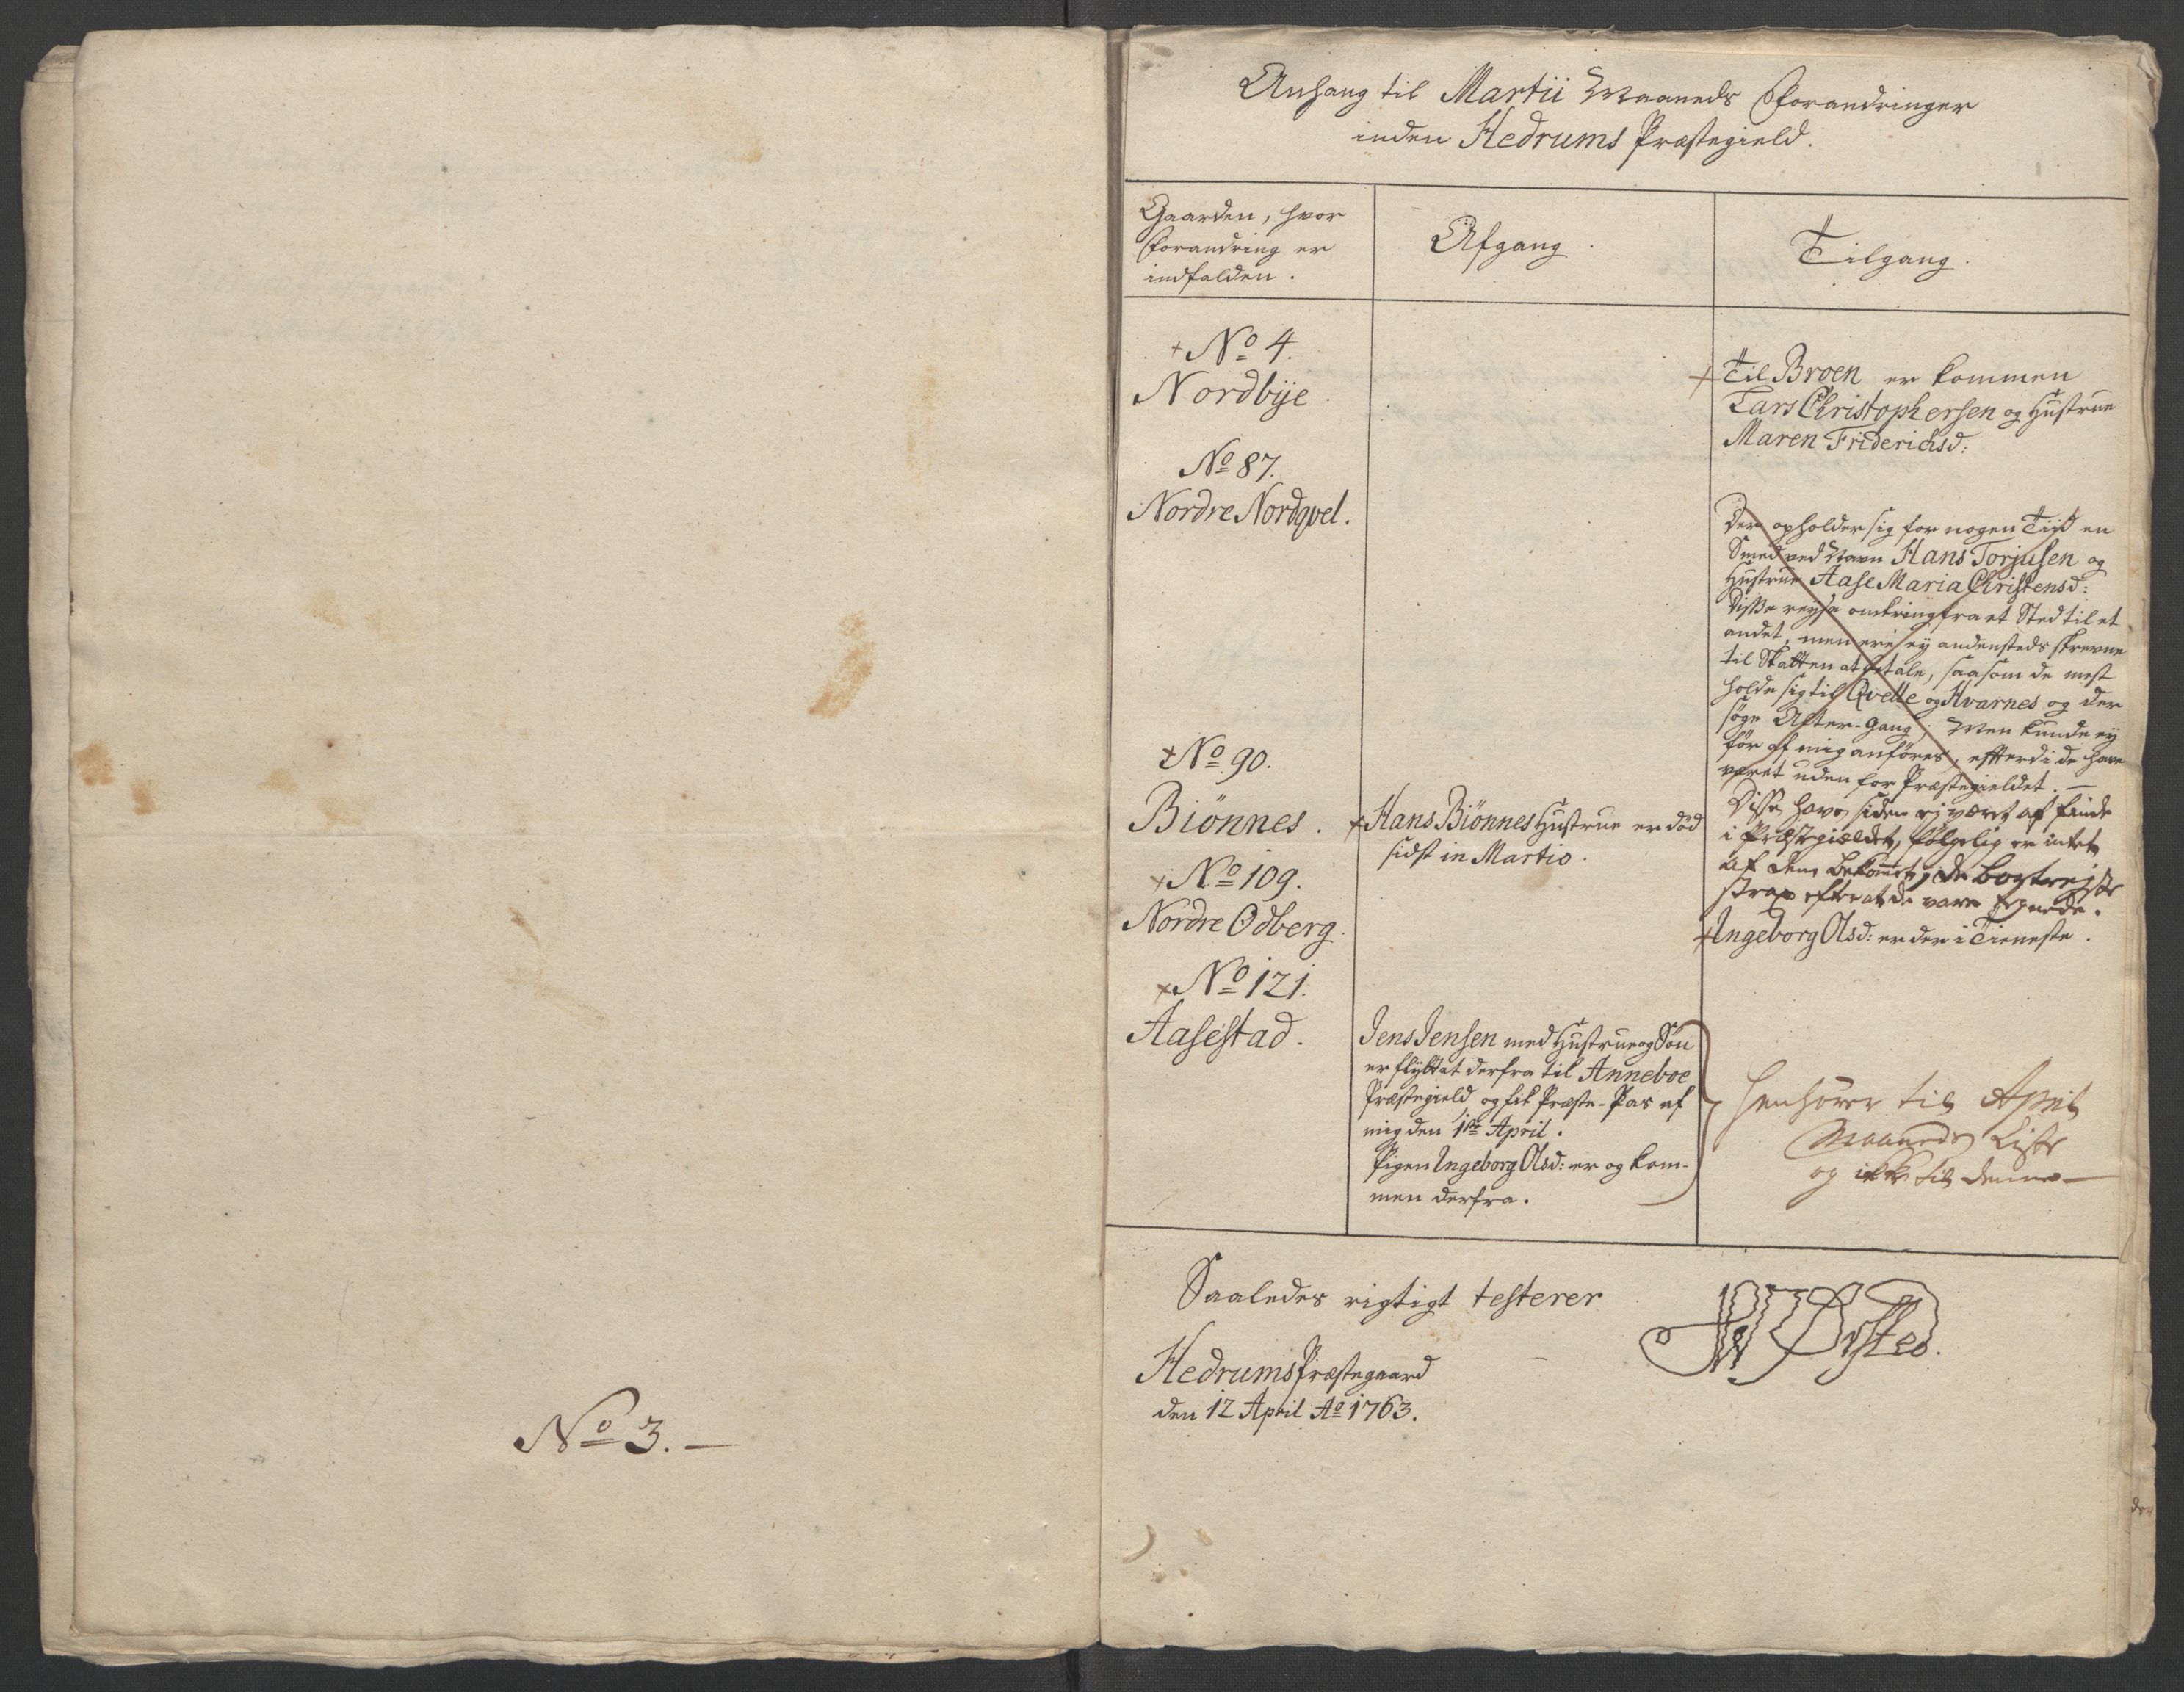 No 3. —
Anhang til Martii Maaneds Forandringer
inden Hedrums Præstegield.
Gaarden, hvor
Forandring er
indfalden.
Afgang.
Tilgang.
+ No 4.
Nordbÿe.
+ Til Broen er kommen
Lars Christophersen og Hustrue
Maren Friderichsd:
No 87.
Nordre Nordqvel.
Der opholder sig for nogen Tiid en
Smed ved Navn Hans Torjusen og
Hustrue Aase Maria Christensd:
Disse reyse omkring fra et Sted til et
andet, men ere ey andensteds skrevne
til Skatten at betale, saasom de mest
holde sig til Qvelle og Hvarnes og der
søge Alter-Gang; Men kunde ey
før af mig anføres, efterdi de have
været uden for Præstegieldet. —
Disse have siden ej været at finde
i Præstegieldet, følgelig er intet
af dem bekomet, de bortreiste
strax efter at de vare
+ No 90.
Biönnes.
+ Hans Biönnes Hustrue er död
sidst in Martio.
+ No 109.
Nordre Odberg.
+ Ingeborg Olsd: er der i Tieneste.
+ No 121.
Aasestad.
Jens Jensen med Hustrue og Søn
er flyttet derfra til Anneboe
Præstegield og fik Præste-Pas af
mig den 1ste April.
Pigen Ingeborg Olsd: er og kom-
men derfra.
henhører til April
Maaneds Liste
og ikke til denne —
Saaledes rigtigt testerer
Hedrums Præstegaard
den 12 April Ao 1763.
Ørsted.